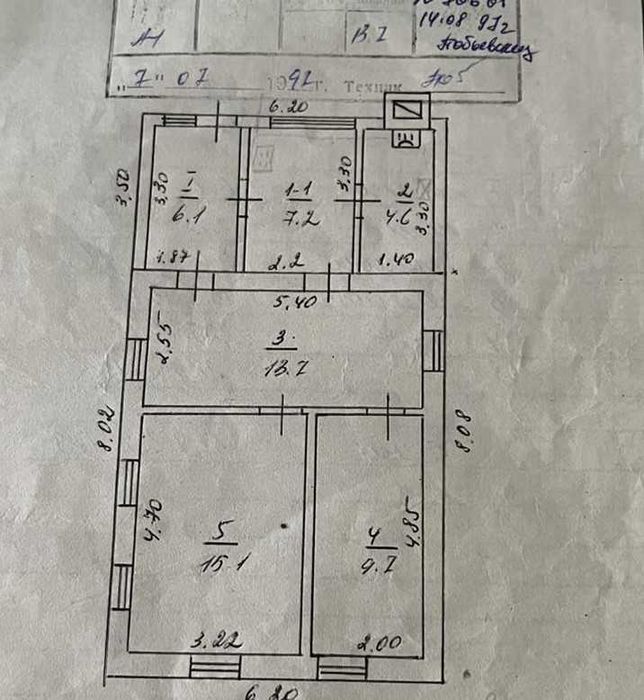 14.08 97г
А1
В 7
"7" 07 1997г. Техник
6.20
3,50
3,30
I
6.1
1.87
1-1
7.2
3,30
2.2
2
4.6
3,30
1.40
5,40
2,55
3
13.7
8.02
8.08
4,70
5
15.1
3.22
4
9.7
4,85
2.00
6.20